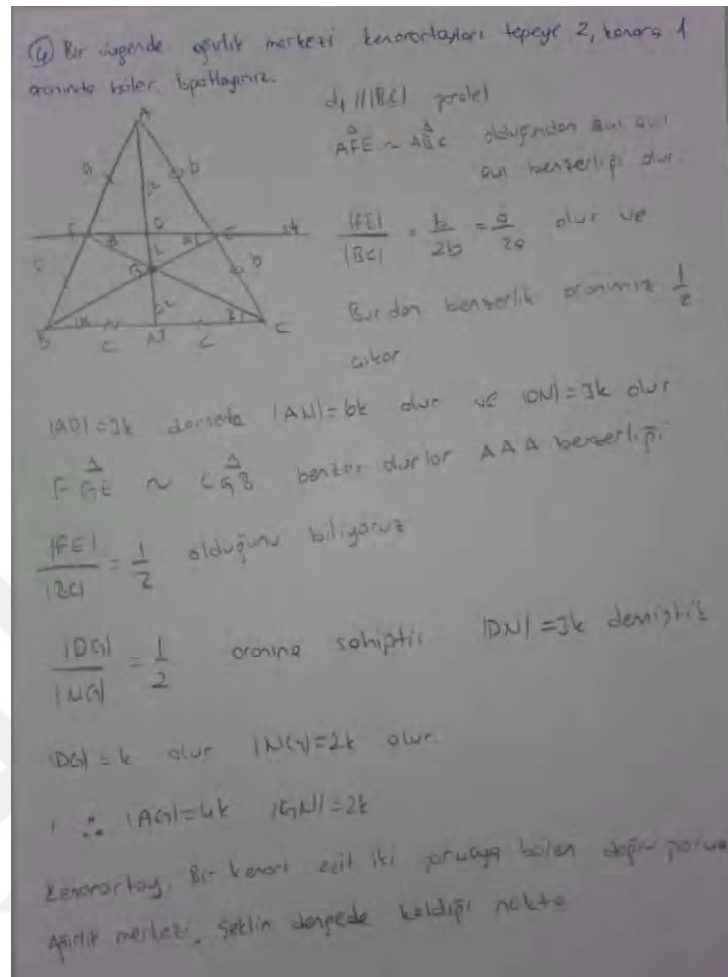 ④ Bir üçgende ağırlık merkezi kenarortayları tepeye 2, kenara 1
oranında böler. İspatlayınız.
d₁ // |BC| paralel
A
AFE ~ ABC olduğundan açı açı
açı benzerliği olur.
a b
|FE| / |BC| = b / 2b = a / 2a olur ve
F E
G
Burdan benzerlik oranımız 1/2
çıkar
B c N c C
|AD|=3k dersek |AN|=6k olur ve |DN|=3k olur
FGE ~ CGB benzer olurlar AAA benzerliği
|FE| / |BC| = 1/2 olduğunu biliyoruz
|DG| / |NG| = 1/2 oranına sahiptir |DN|=3k demiştik
|DG|=k olur |NG|=2k olur.
∴ |AG|=4k |GN|=2k
Kenarortay, Bir kenarı eşit iki parçaya bölen doğru parçası
Ağırlık merkezi, Şeklin dengede kaldığı nokta